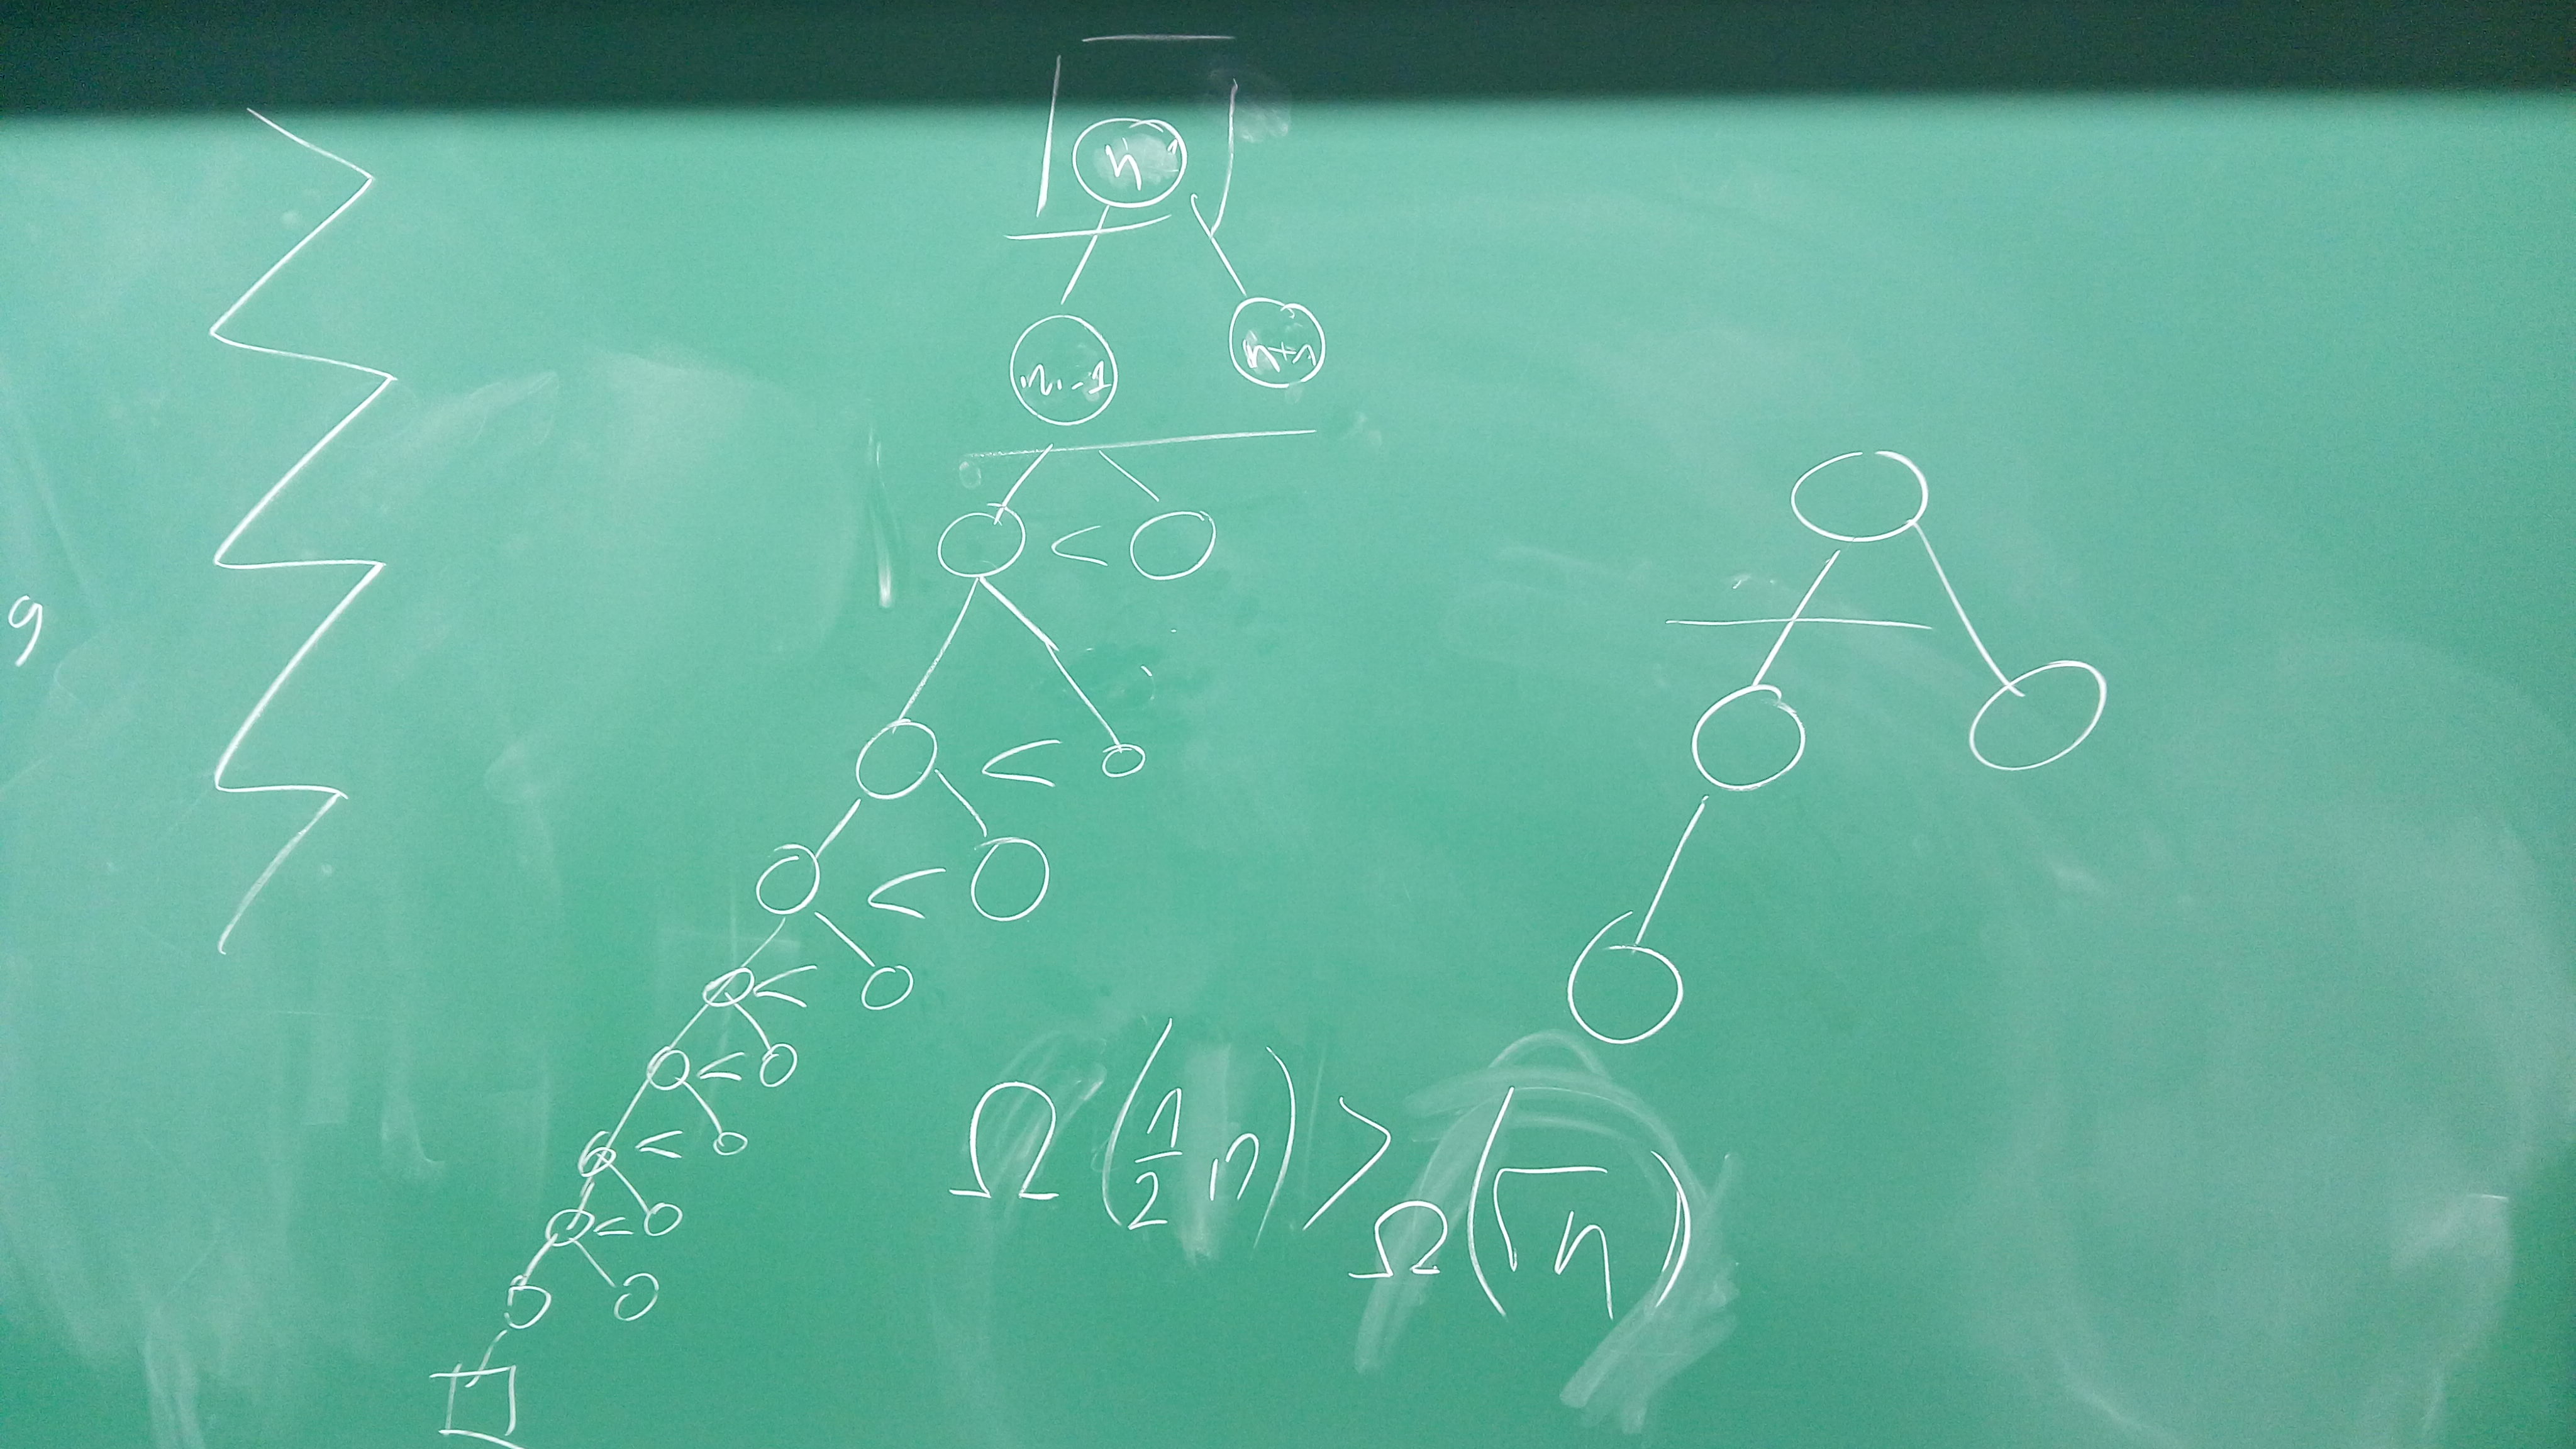 n
n-1 n+1
<
<
<
<
<
<
<
9
Ω(1/2 n) > Ω(√n)